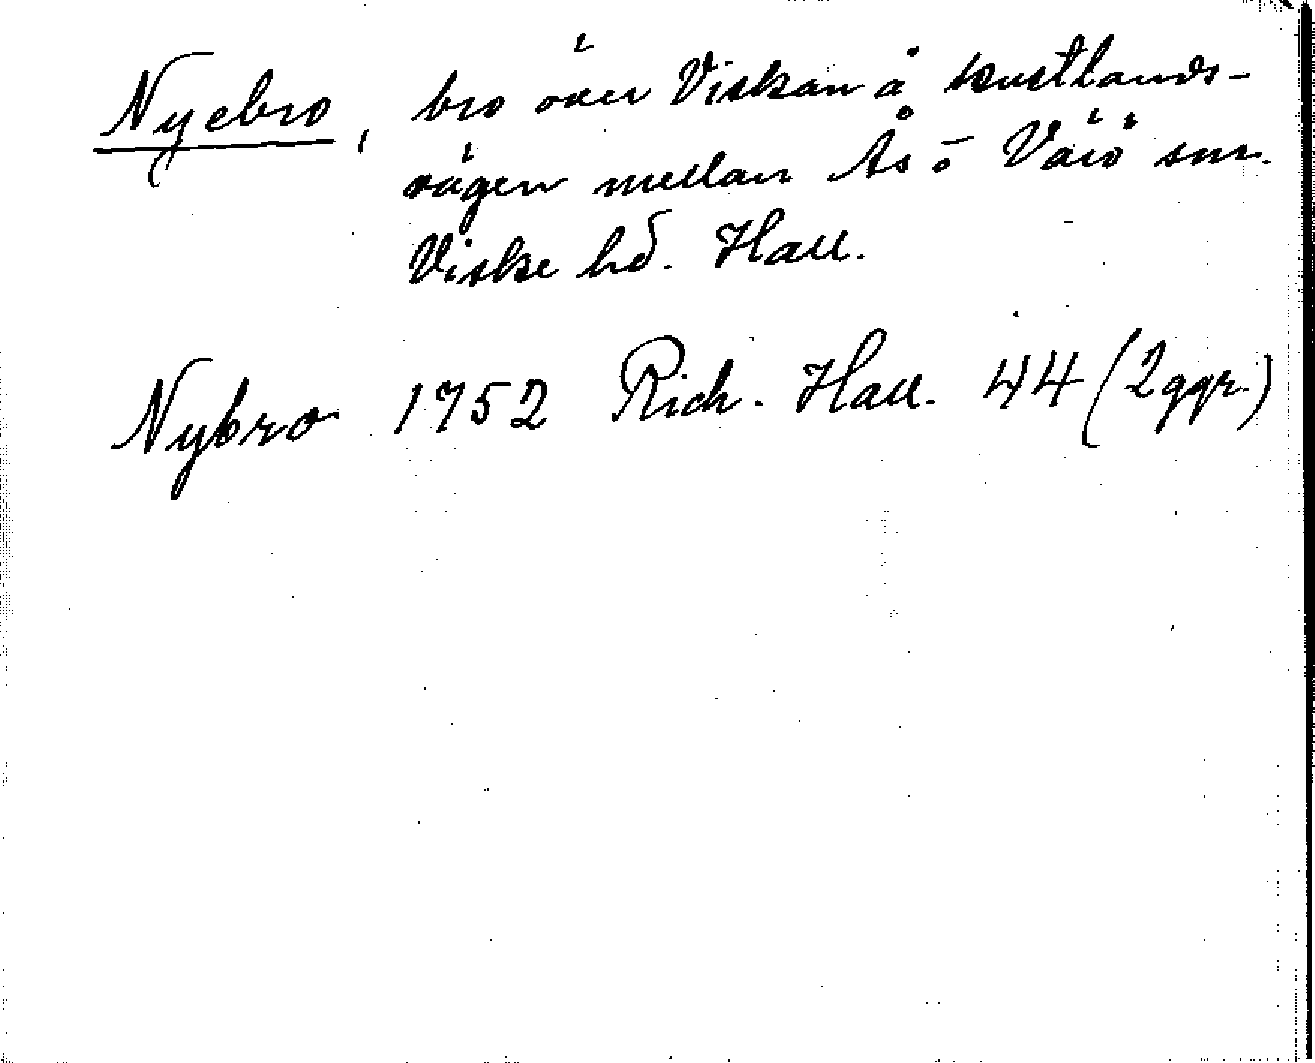 Nyebro, bro över Viskan å kustlands-
vägen mellan Ås o Värö snr.
Viske hd. Hall.
Nybro 1752 Rich. Hall. 44 (2 ggr.)